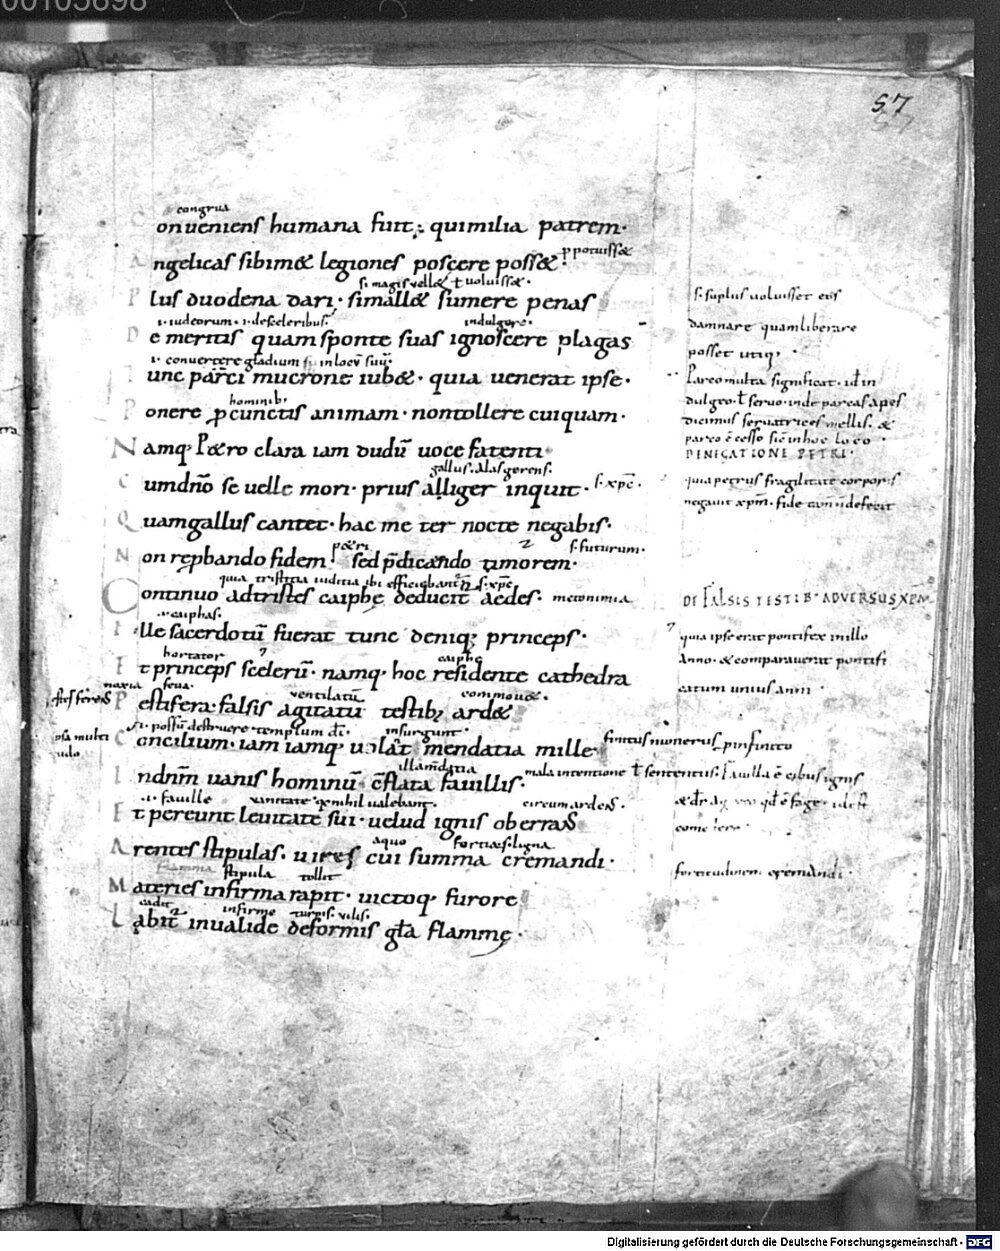 00105698
57
congrua
Conueniens humana fuit; qui milia patrem·
p potuisse
Angelicas sibimet legiones poscere posset
si magis vellet ł uoluisset·
Plus duodena dari· si mallet sumere penas
s. si plus uoluisset eis
damnare quam liberare
posset utiq;
·i· iudeorum· ·i· de sceleribus·
indulgere·
De meritis quam sponte suas ignoscere plagas
·i· convertere gladium in locū suū·
Tunc parci mucrone iubet· quia uenerat ipse·
Parco multa significat· id in
dulgeo· ł seruo· inde parcas apes
dicimus seruatrices mellis· &
parco ē cesso sic in hoc loco·
hominib·
Ponere p cunctis animam· non tollere cuiquam·
Namq; Petro clara iam dudū uoce fatenti·
DENEGATIONE PETRI·
gallus· alas gerens·
Cum dn̄o se uelle mori· prius alliger inquit· s· xp̄c·
quia petrus fragilitate corporis
negauit xp̄m· fide tam̄ n̄ defecit
Quam gallus cantet· hac me ter nocte negabis·
petri
s· futurum·
Non rep̄bando fidem· sed p̄dicando timorem·
quia tristitia iudicia ibi efficiebant̄
s· xp̄c
Continuo ad tristes caiphę deducit̄ aedes· metonimia
DE FALSIS TESTIB· ADVERSUS XP̄M
·i· caiphas·
Ille sacerdotū fuerat tunc deniq; princeps·
quia ipse erat pontifex in illo
Anno· & comparauerat pontifi
catum unius anni·
hortator
caiphe
Et princeps scelerū· namq; hoc residente cathedra
noxia seua·
ventilatū
commouet·
Pestifera· falsis agitatū testib; ardet
·i· possū destruere templum dī·
insurgunt·
Concilium· iam iamq; uolāt mendatia mille finitus numerus p infinito
illa mendatia
mala intentione ł sententiis· Fauilla ē cibus ignis
In dn̄m uanis hominū cōflata fauillis·
·i· fauille uanitate· q; nihil ualebant·
circum ardens·
Et pereunt leuitate sui· uelud ignis oberrans
aquo
fortia s· ligna
Arentes stipulas· uires cui summa cremandi·
fortitudinem· cremandi·
flamma stipula tollit
Materies infirma rapit· uictoq; furore
cadit
infirme turpis· vilis·
Labit̄ inualide deformis gła flammę·
Digitalisierung gefördert durch die Deutsche Forschungsgemeinschaft - DFG